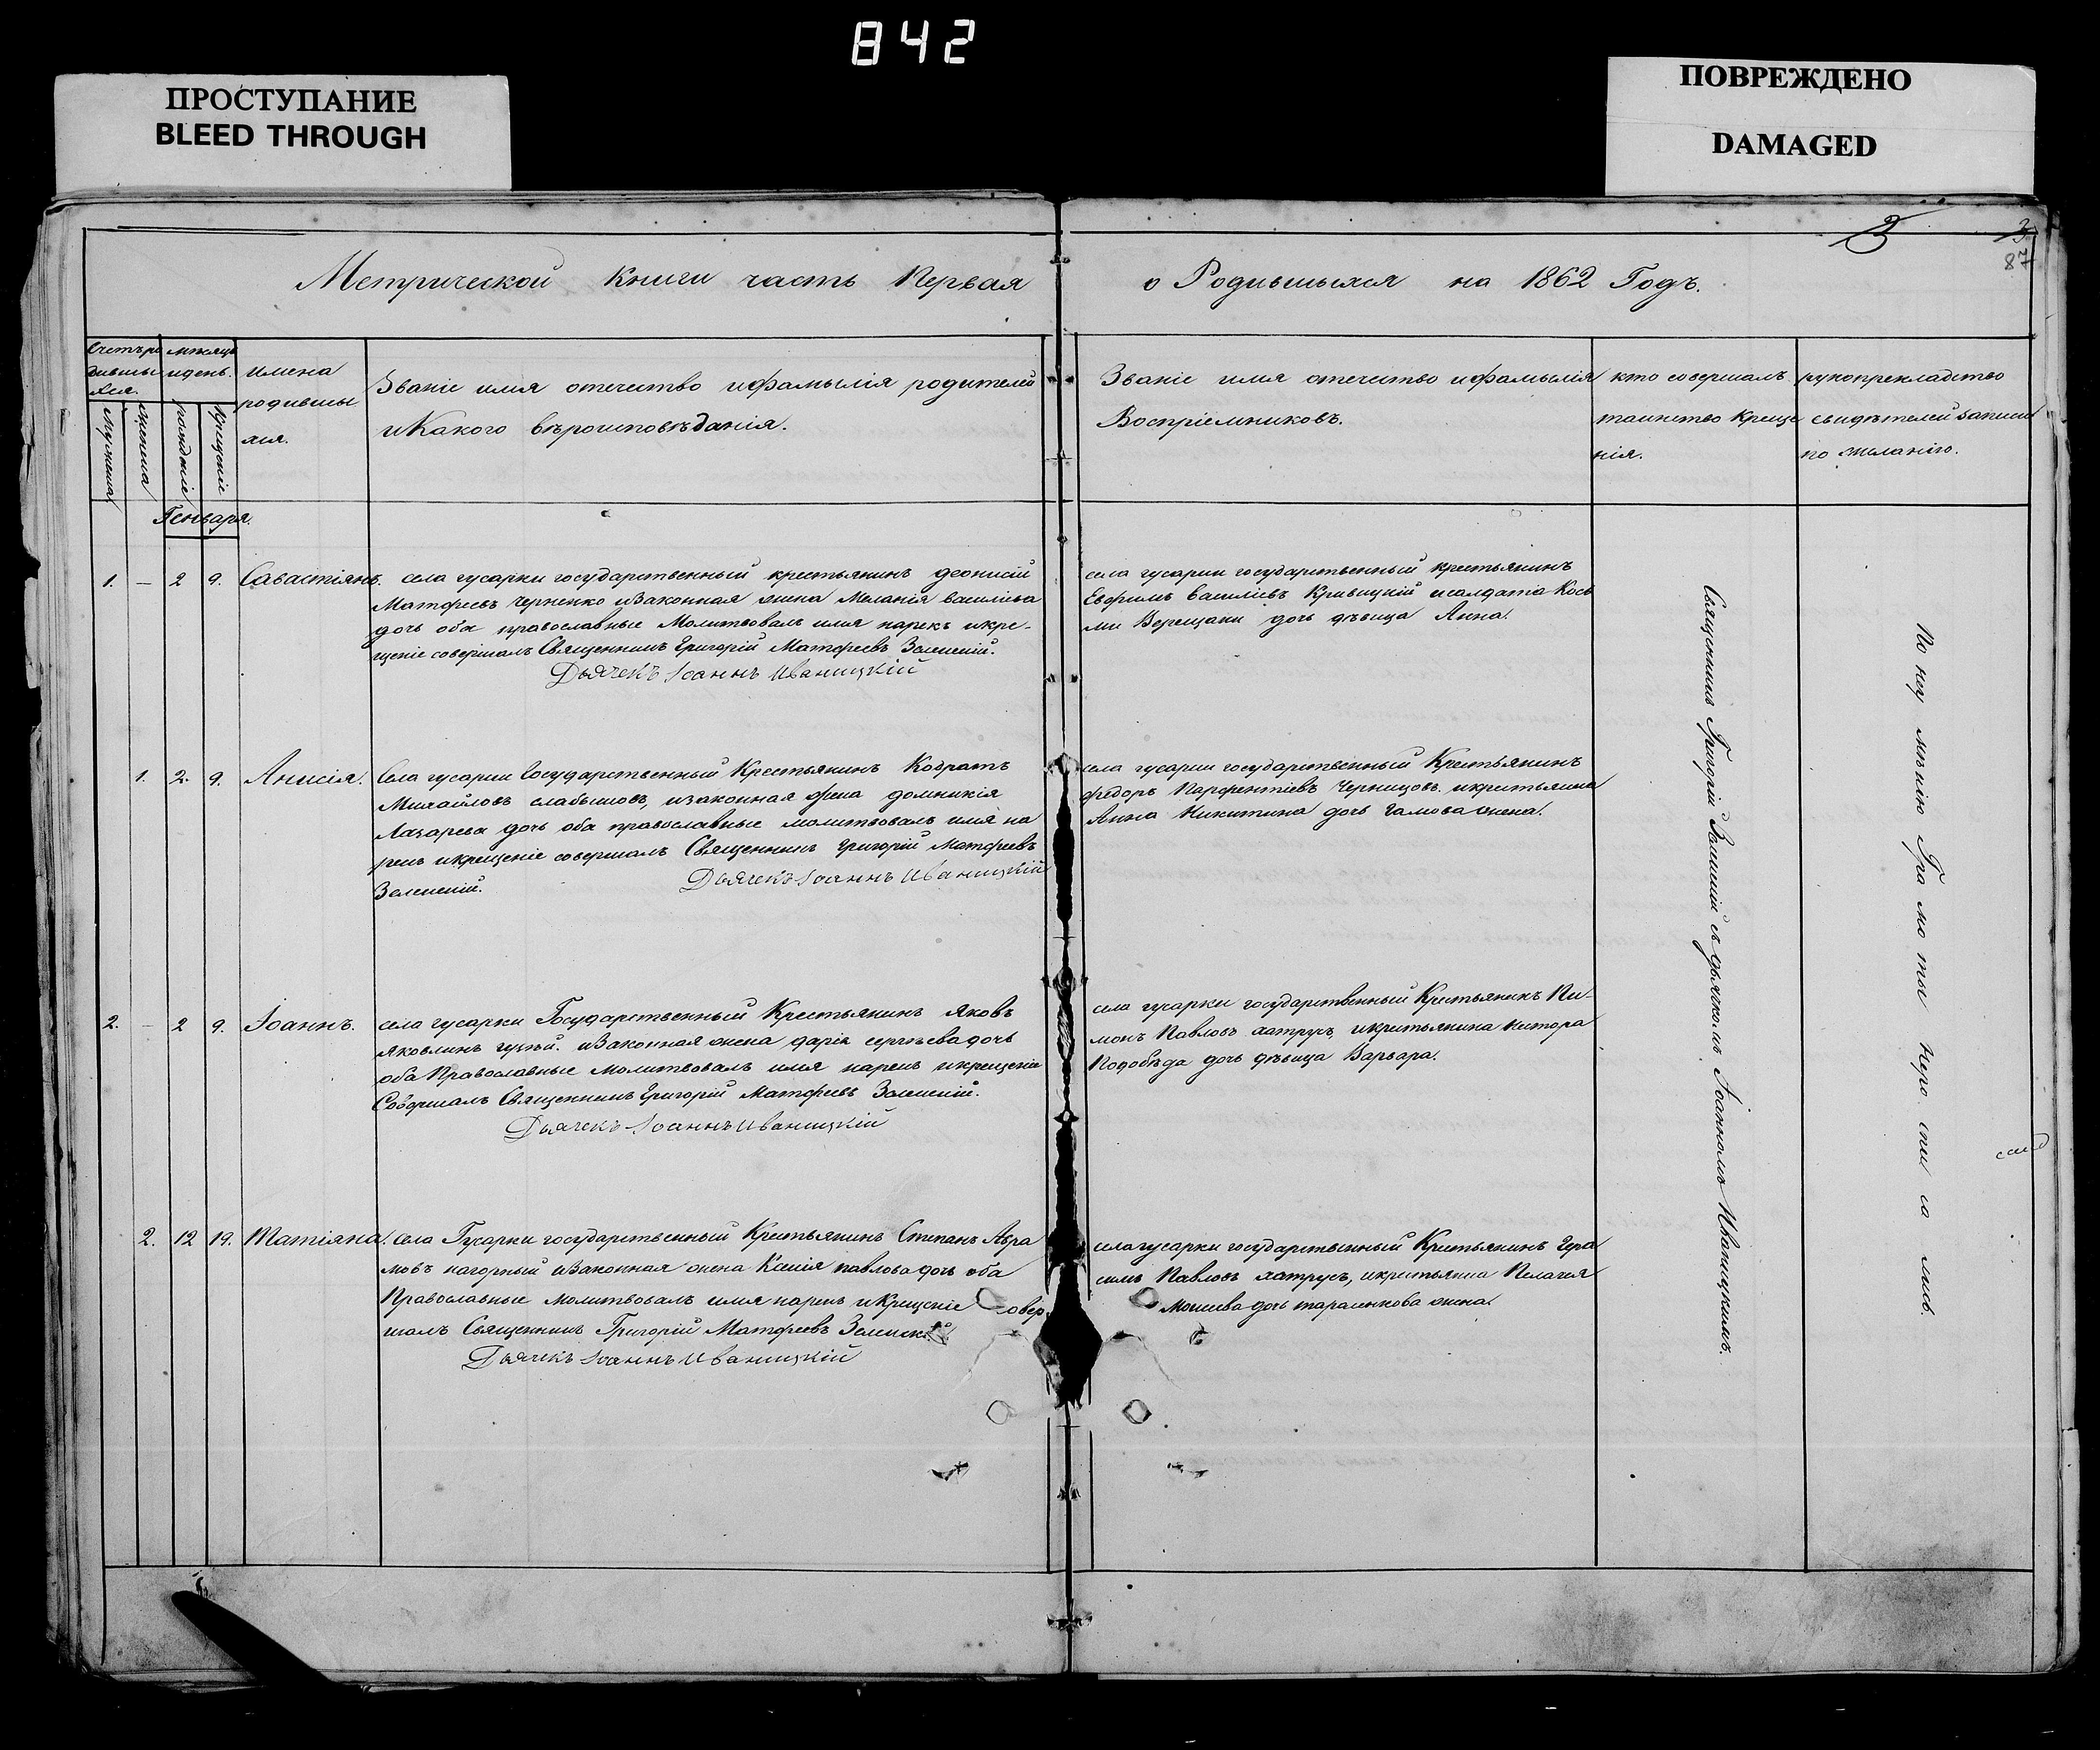 842
ПРОСТУПАНИЕ
BLEED THROUGH
ПОВРЕЖДЕНО
DAMAGED
3
3
87
Метрической книги часть Первая
о Родившыхся на 1862 Годъ.
Счетъ ро
дившы
хся.
мѣсяцъ
и день.
Мужеска
женска
рожденіе
Крещеніе
имена
родившы
хся.
Званіе имя отечество и фамылія родителей
и Какого вѣроисповѣданія.
Званіе имя отечество и фамылія
Воспріемниковъ.
кто совершалъ
таинство Креще
нія.
рукоприкладство
свидѣтелей записи
по желанію.
Генваря.
1. — 2 9. Савастіянъ.
села гусарки государственный крестьянинъ деонисій
Матфеевъ Черненко и Законная жена Меланія васильева
дочь оба православные Молитвовалъ имя нарекъ и кре-
щеніе совершалъ Священникъ Григорій Матфеевъ Зеленскій.
Дьячекъ Іоаннъ Иваницкій
села гусарки государственный крестьянинъ
Евфимъ Василіевъ Кривицкій и солдата Кось
ми Верещаки дочь дѣвица Анна.
1. 2. 9. Анисія.
Села гусарки Государственный Крестьянинъ Кодратъ
Михайловъ слабышовъ, и законная жена домникія
Лазарева дочь оба православные молитвовалъ имя на
рекъ и крещеніе совершалъ Священникъ Григорій Матфеевъ
Зеленскій. Дьячекъ Іоаннъ Иваницкій
села гусарки государственный Крестьянинъ
федоръ Парфентіевъ Черницовъ, и крестьянка
Анна Никитина дочь Гамова жена.
2. — 2 9. Іоаннъ.
села гусарки Государственный Крестьянинъ Яковъ
Яковлинъ гузѣй. и Законная жена дарія сергѣева дочь
оба Православные Молитвовалъ имя нарекъ и крещеніе
Совершалъ Священникъ Григорій Матфеевъ Зеленскій.
Дьячекъ Іоаннъ Иваницкій
села гусарки государственный Крестьянинъ Пи-
монъ Павловъ хатрусъ, и крестьянина
Подобѣда дочь дѣвица Варвара.
2. 12 19. Татіяна.
села Гусарки государственный Крестьянинъ Степанъ Авра
мовъ нагорный и Законная жена Ксенія павлова дочь оба
Православные Молитвовалъ имя нарекъ и Крещеніе Совер
шалъ Священникъ Григорій Матфеевъ Зеленскій
Дьячекъ Іоаннъ Иваницкій
села гусарки государственный Крестьянинъ Гера
симъ Павловъ хатрусъ, и крестьянка Пелагея
Моисеева дочь тарасенкова жена.
Священникъ Григорій Зеленскій съ дьячкомъ Іоанномъ Иваницкимъ.
По неу мѣнію Гра мо ты